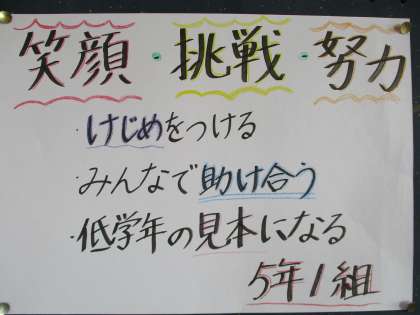 笑顔・挑戦・努力
・けじめをつける
・みんなで助け合う
・低学年の見本になる
5年1組